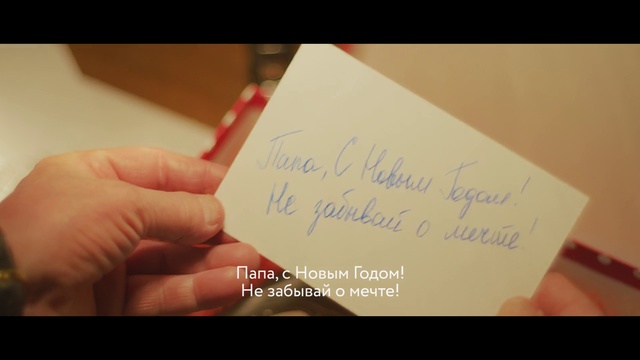 Папа, С Новым Годом!
Не забывай о мечте!
Папа, с Новым Годом!
Не забывай о мечте!